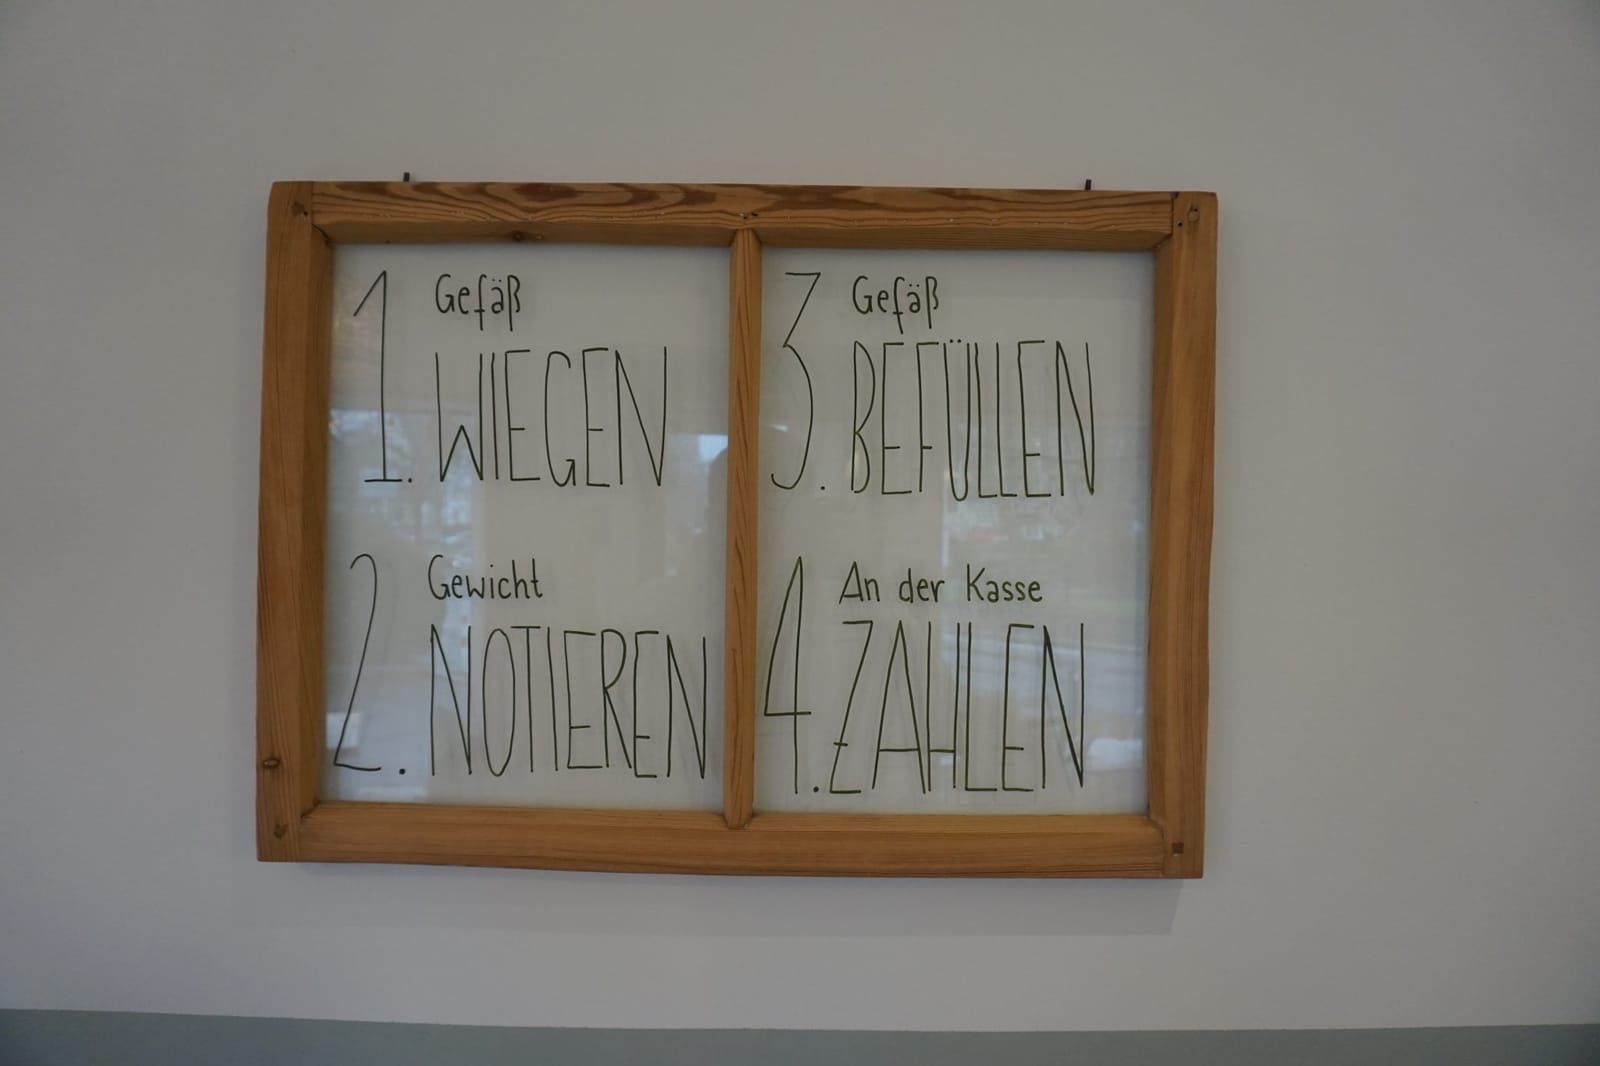 1. Gefäß
WIEGEN
2. Gewicht
NOTIEREN
3. Gefäß
BEFÜLLEN
4. An der Kasse
ZAHLEN